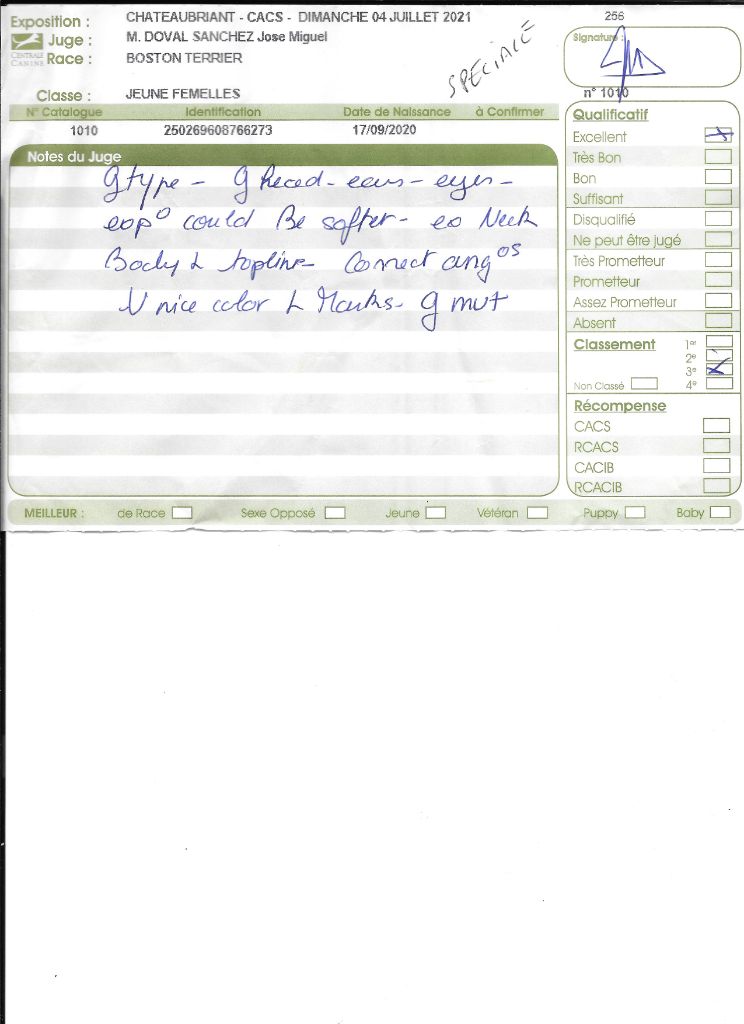 Exposition : CHATEAUBRIANT - CACS - DIMANCHE 04 JUILLET 2021
256
Juge : M. DOVAL SANCHEZ Jose Miguel
CENTRALE CANINE
Race : BOSTON TERRIER
SPECIALE
Signature :
Classe : JEUNE FEMELLES
n° 1010
N° Catalogue Identification Date de Naissance à Confirmer
1010 250269608766273 17/09/2020
Notes du Juge
G type - G Head - ears - eyes -
exp° could Be softer - ex Neck
Body & topline - Correct ang°s
V nice color & Marks - G mvt
Qualificatif
Excellent
Très Bon
Bon
Suffisant
Disqualifié
Ne peut être jugé
Très Prometteur
Prometteur
Assez Prometteur
Absent
Classement 1er
2e
3e
Non Classé 4e
Récompense
CACS
RCACS
CACIB
RCACIB
MEILLEUR : de Race Sexe Opposé Jeune Vétéran Puppy Baby